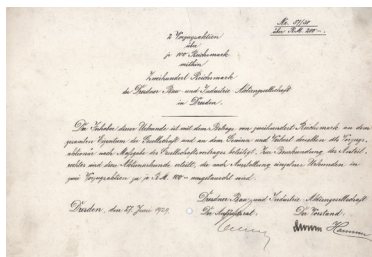 No 51/50
über R.M. 200.-.
2 Vorzugsaktien
über
je 100 Reichsmark
mithin
Zweihundert Reichsmark
der Dresdner Bau- und Industrie Aktiengesellschaft
in Dresden.
Der Inhaber dieser Urkunde ist mit dem Betrage von zweihundert Reichsmark an dem
gesamten Eigentum der Gesellschaft und an dem Gewinn und Verlust derselben als Vorzugs-
aktionär nach Maßgabe des Gesellschaftsvertrages beteiligt. Zur Beurkundung der Anteils-
rechte wird diese Aktienurkunde erteilt, die nach Ausstellung einzelner Urkunden in
zwei Vorzugsaktien zu je R.M. 100.- umgetauscht wird.
Dresden, den 27. Juni 1929.
Dresdner Bau- und Industrie Aktiengesellschaft
Der Aufsichtsrat. Der Vorstand.